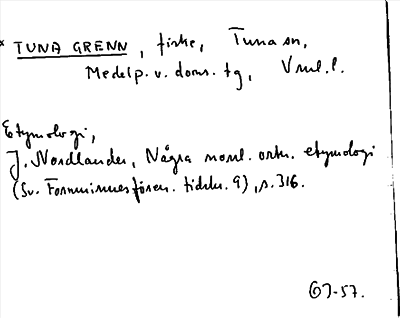 * TUNA GRENN, fiske, Tuna sn,
Medelp. v. doms. tg, Vnl. l.
Etymologi,
J. Nordlander, Några norrl. ortn. etymologi
(Sv. Fornminnesfören. tidskr. 9), s. 316.
GJ-57.